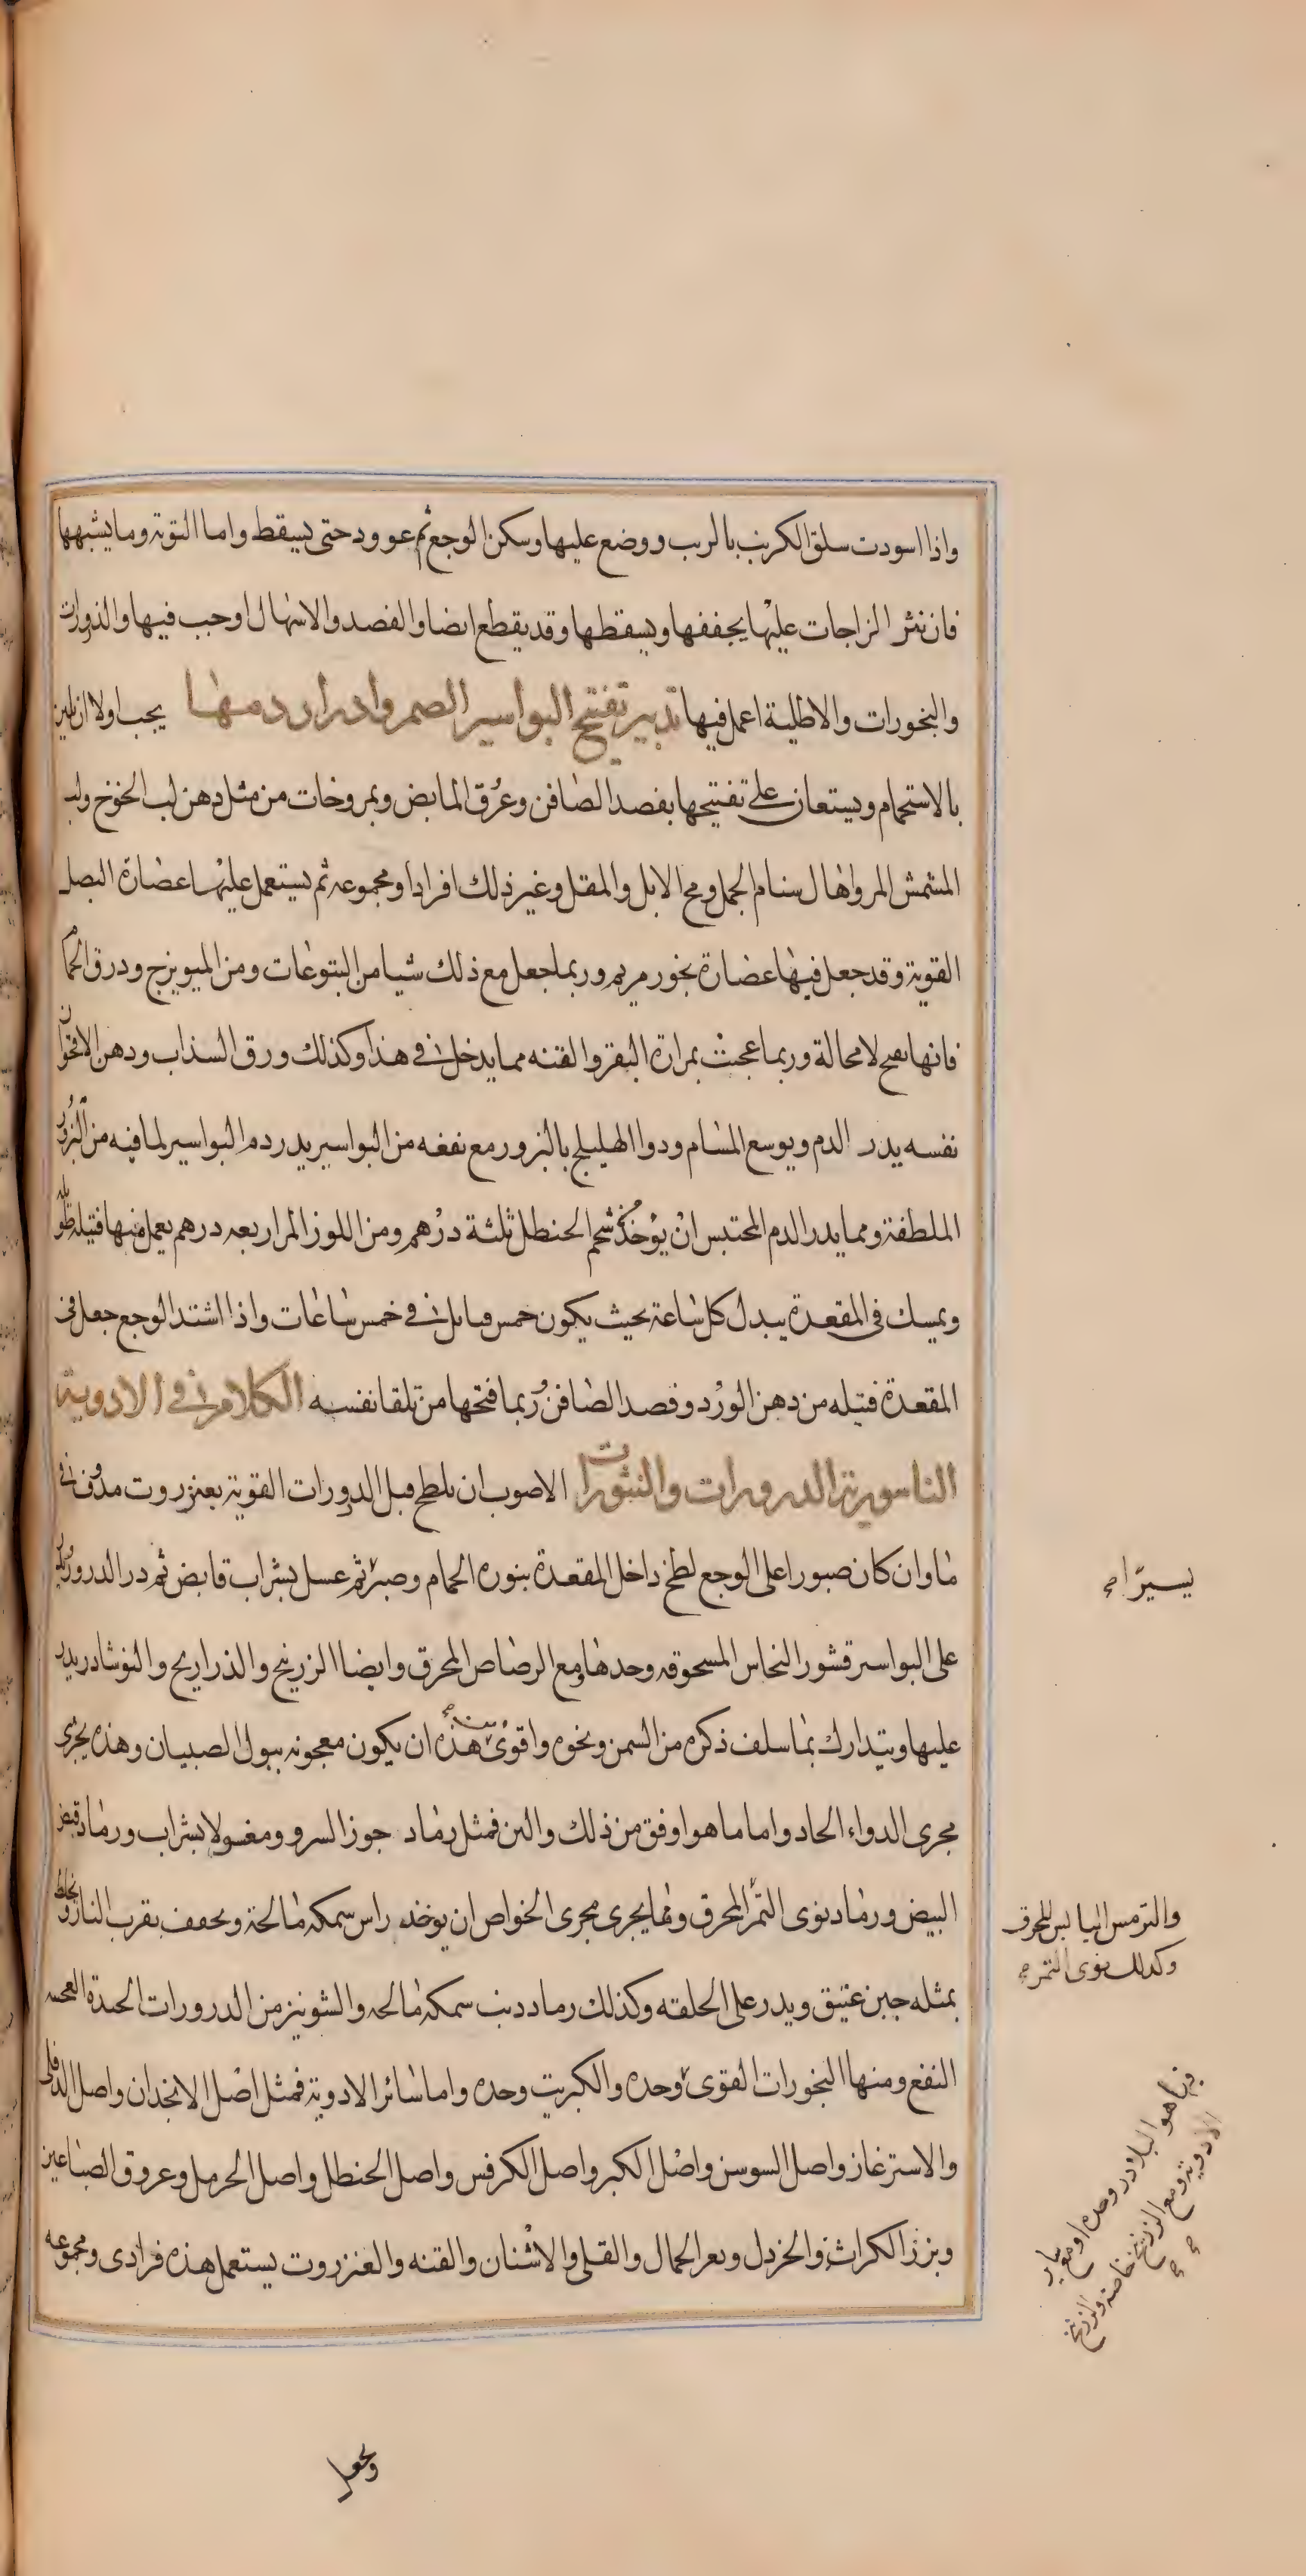 واذا اسودت سلق الكرنب بالرب ووضع عليها وسكن الوجع ثم عوود حتى يسقط واما التوتة وما يشبهها
فان نثر الزاجات عليها يجففها ويسقطها وقد يقطع ايضا والفصد والاسهال اوجب فيها والذرورات
والبخورات والاطلية اعمل فيها تدبير تفتيح البواسير الصم وادرار دمها يجب اولا ان يلين
بالاستحمام ويستعان على تفتيحها بفصد الصافن وعرق المابض وبمروخات من مثل دهن لب الخوخ ولب
المشمش المر واهال سنام الجمل ومخ الابل والمقل وغير ذلك افرادا ومجموعه ثم يستعمل عليها عصارة البصل
القوية وقد جعل فيها عصارة بخور مريم وربما جعل مع ذلك شيا من اليتوعات ومن الميويزج ودرق الحمام
فانها تفتح لا محالة وربما عجنت بمرارة البقر والقنه مما يدخل في هذا وكذلك ورق السذاب ودهن الاقحوان
نفسه يدر الدم ويوسع المسام ودوا الهليلج بالبزور مع نفعه من البواسير يدر دم البواسير لما فيه من البزور
الملطفة ومما يدر الدم المحتبس ان يؤخذ شحم الحنطل ثلثة درهم ومن اللوز المر اربعه درهم يعمل منها فتيله
ويمسك في المقعدة يبدل كل ساعة بحيث يكون خمس فتايل في خمس ساعات واذا اشتد الوجع جعل في
المقعدة فتيله من دهن الورد وفصد الصافن وربما فتحها من تلقا نفسه الكلام في الادوية
الباسورية الذرورات والنثورات الاصوب ان يلطخ قبل الذرورات القوية بعنزروت مدوف في
ما وان كان صبورا على الوجع لطخ داخل المقعدة بنوره الحمام وصبر ثم غسل بشراب قابض ثم ذر الذرور
على البواسير قشور النحاس المسحوقه وحدها ومع الرصاص المحرق وايضا الزرنيخ والذراريح والنوشادر يذر
عليها ويتدارك بما سلف ذكره من السمن ونحوه واقوى من هذه ان يكون معجونه ببول الصبيان وهذه يجرى
مجرى الدواء الحاد واما ما هو اوفق من ذلك والين فمثل رماد جوز السرو ومغسولا بشراب ورماد قيض
البيض ورماد نوى التمر المحرق ومما يجرى مجرى الخواص ان يوخذ راس سمكه مالحة ويجفف بقرب النار ويخلط
بمثله جبن عتيق ويذر على الحلقه وكذلك رماد ذنب سمكه مالحه والشونيز من الذرورات الجيدة العجيبه
النفع ومنها البخورات القوى وحده والكبريت وحده واما سائر الادوية فمثل اصل الانجدان واصل الدفلى
والاسترغاز واصل السوسن واصل الكبر واصل الكرفس واصل الحنطل واصل الحرمل وعروق الصباغين
وبزر الكراث والخردل وبعر الجمال والقلى والاشنان والقنه والعنزروت يستعمل هذه فرادى ومجموعه
يسيرا
والترمس اليابس المحرق
وكذلك نوى التمر
فيما هو البلادر وحده او مع ساير
الادوية ومع الزرنيخ خاصة والزرنيخ
وبجعل